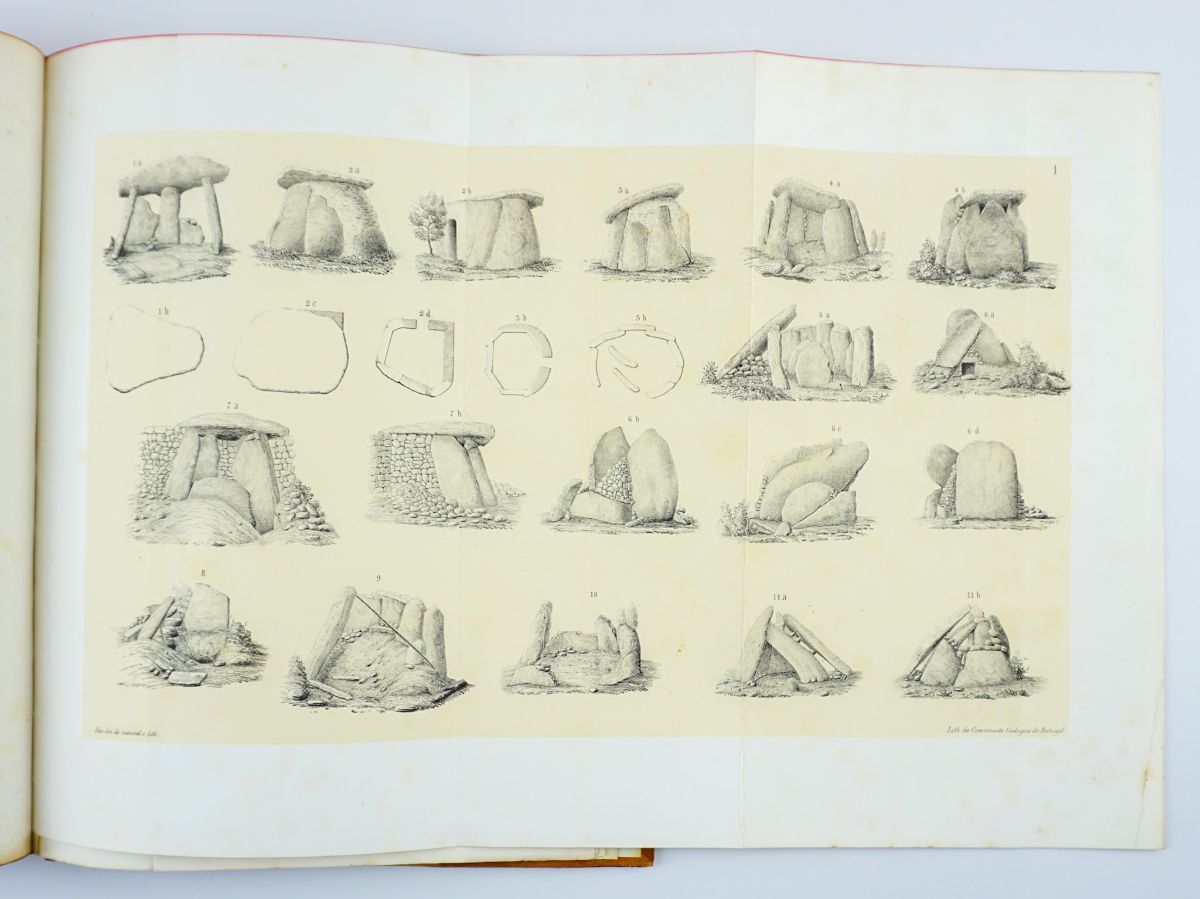 1
1 a
2 a
2 b
3 a
4 a
4 b
1 b
2 c
2 d
3 b
5 b
5 a
6 a
7 a
7 b
6 b
6 c
6 d
8
9
10
11 a
11 b
des do natural e lith.
Lith. da Commissão Geologica de Portugal